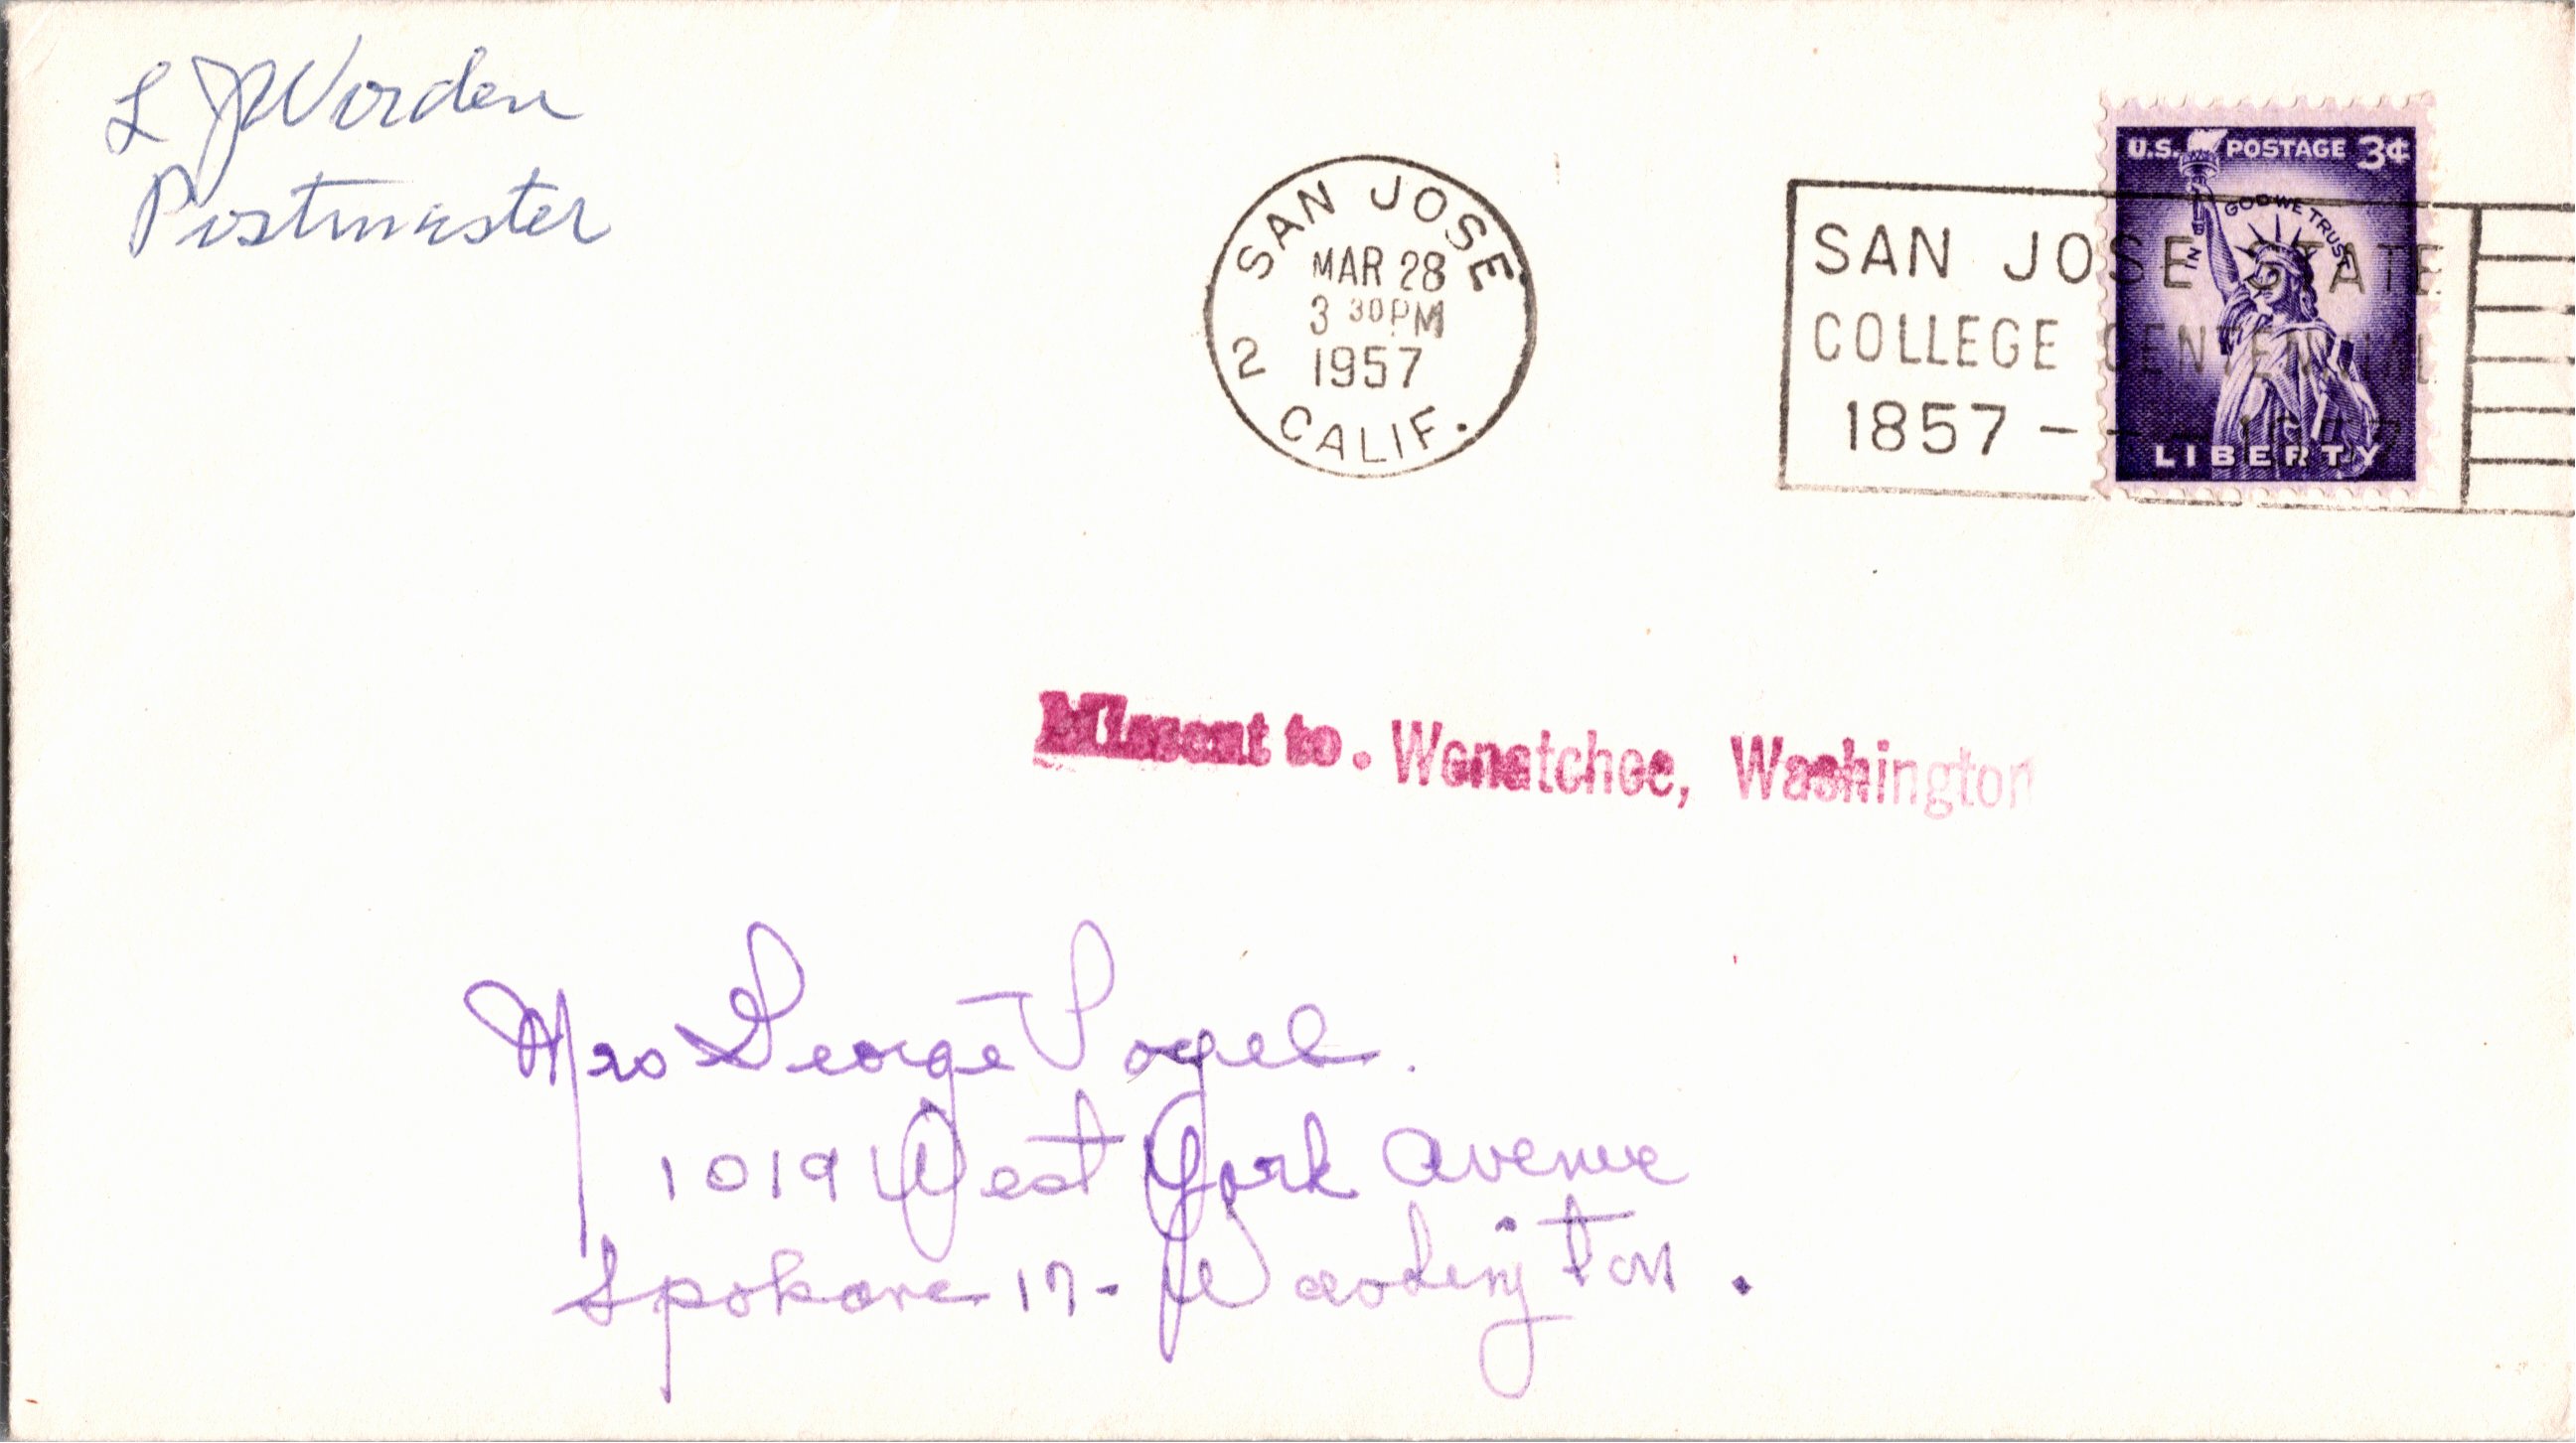 L J Worden
Postmaster
SAN JOSE
MAR 28
3 30 PM
1957
2
CALIF.
SAN JOSE STATE
COLLEGE CENTENNIAL
1857 - - - 1957
U.S. POSTAGE 3¢
IN GOD WE TRUST
LIBERTY
Missent to. Wenatchee, Washington
Mrs George Vogel.
1019 West York Avenue
Spokane 17 - Washington.